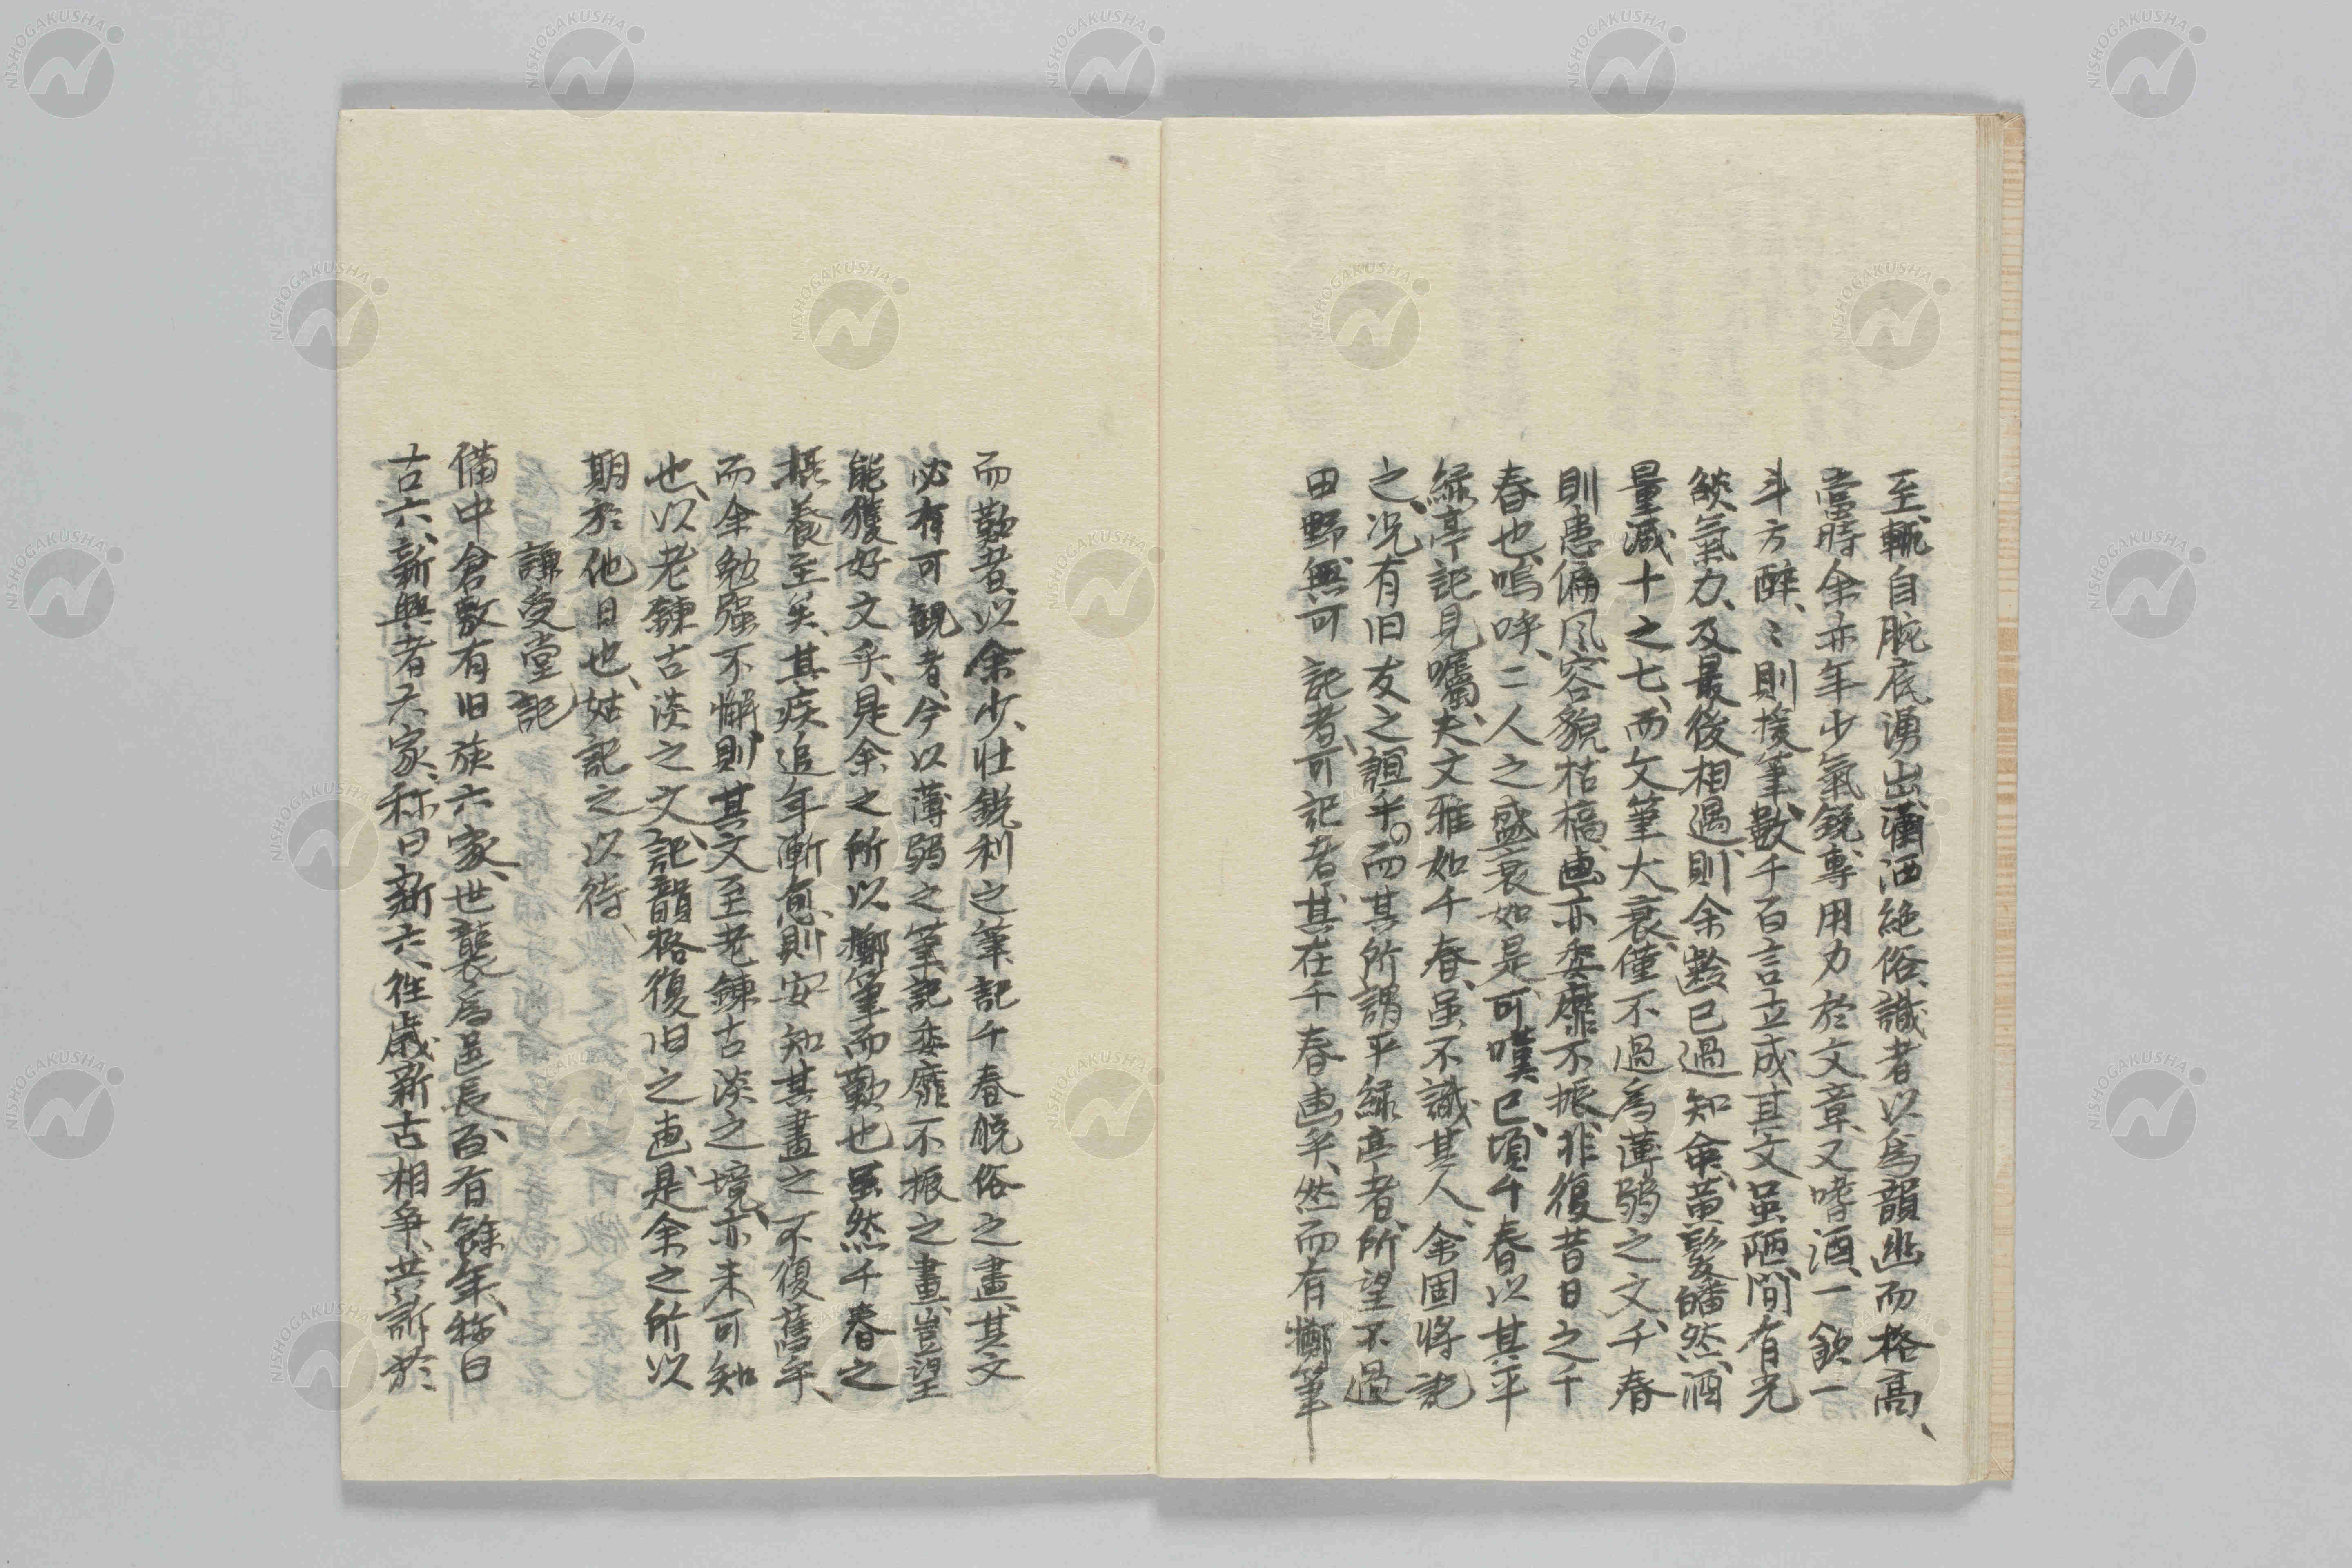 至、輒自腕底湧出、瀟洒絶俗、識者以為韻幽而格高、
当時余亦年少氣鋭、專用力於文章、又嗜酒、一飲一
斗方酔、〻則援筆、数千百言立成、其文虽陋、間有光
燄氣力、及最後相遇、則余齢已過知命、黄髪皤然、酒
量減十之七、而文筆大衰、僅不過為薄弱之文、千春
則患偏風、容貌枯槁、画亦委靡不振、非復昔日之千
春也、嗚呼、二人之盛衰如是、可嘆已、頃千春以其平
緑亭記見囑、夫文雅如千春、虽不識其人、余固将記
之、况有旧友之誼乎、而其所謂平緑亭者、所望不過
田野、無可記者、可記者、其在千春画乎、然而有擲筆
而歎者、以余少壮鋭利之筆、記千春脱俗之畫、其文
必有可観者、今以薄弱之筆、記委靡不振之畫、豈望
能獲好文乎、是余之所以擲筆而歎也、虽然千春之
摂養至矣、其疾追年漸愈、則安知其畫之不復舊乎、
而余勉强不懈、則其文至老錬古淡之境、亦未可知
也、以老錬古淡之文、記韻格復旧之画、是余之所以
期於他日也、姑記之以待、
謙受堂記
備中倉敷有旧族六家、世襲為邑長、百有餘年、称曰
古六、新興者六家、称曰新六、徃歳新古相争、共訴於
NISHOGAKUSHA